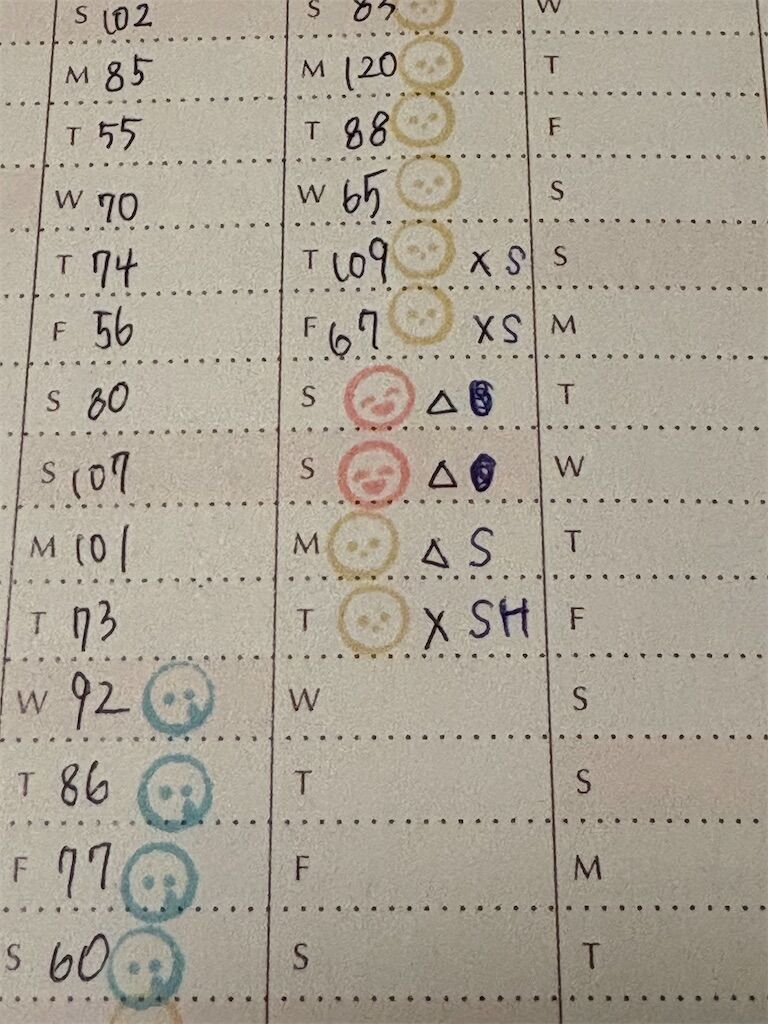 S 102 S 85 W
M 85 M 120 T
T 55 T 88 F
W 70 W 65 S
T 74 T 109 X S S
F 56 F 67 X S M
S 80 S △ T
S 107 S △ W
M 101 M △ S T
T 73 T X SH F
W 92 W S
T 86 T S
F 77 F M
S 60 S T